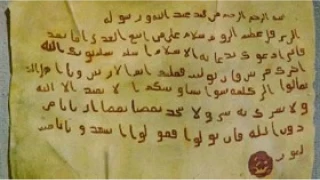 بسم الله الرحمن الرحيم من محمد عبد الله ورسول
الى هرقل عظيم الروم سلام على من اتبع الهدى اما بعد
فانى ادعوك بدعاية الاسلام اسلم تسلم يوتك الله
اجرك مرتين فان توليت فعليك اثم الاريسيين ويا اهل
تعالوا الى كلمة سوا بيننا وبينكم الا نعبد الا الله
ولا نشرك به شيا ولا يتخذ بعضنا بعضا اربابا من
دون الله فان تولوا فقولوا اشهدوا بانا مسـ
لمون